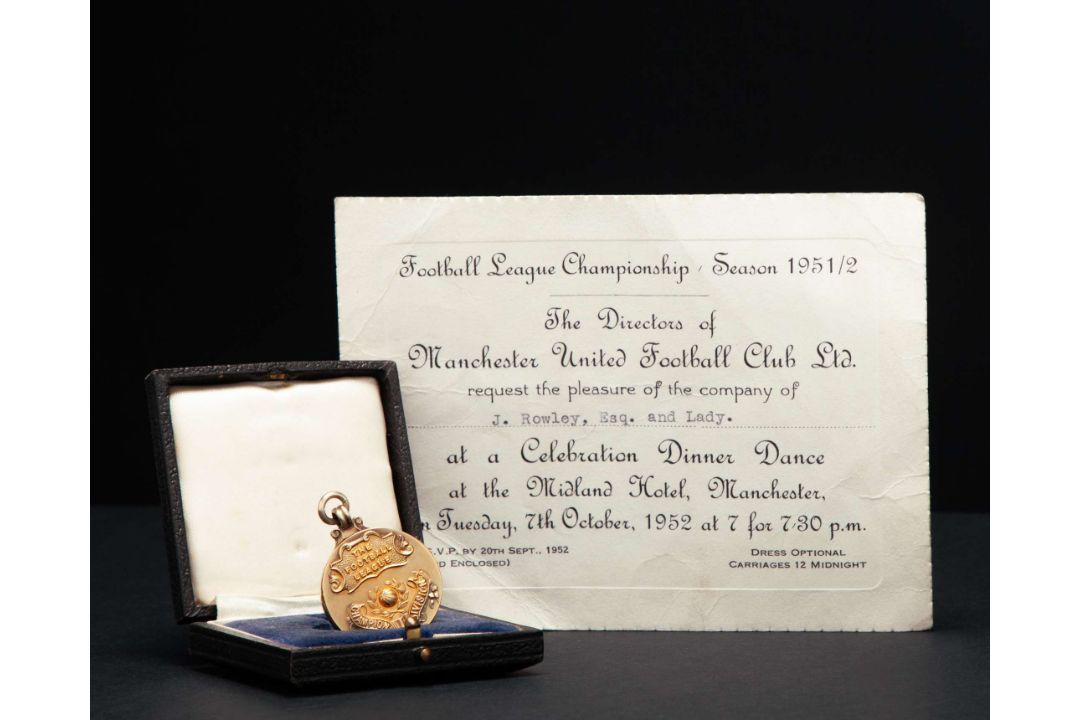 Football League Championship , Season 1951/2
The Directors of
Manchester United Football Club Ltd.
request the pleasure of the company of
J. Rowley, Esq. and Lady.
at a Celebration Dinner Dance
at the Midland Hotel, Manchester,
n Tuesday, 7th October, 1952 at 7 for 7.30 p.m.
.V.P. BY 20TH SEPT., 1952
D ENCLOSED)
DRESS OPTIONAL
CARRIAGES 12 MIDNIGHT
THE
FOOTBALL
LEAGUE
CHAMPION
DIVISION